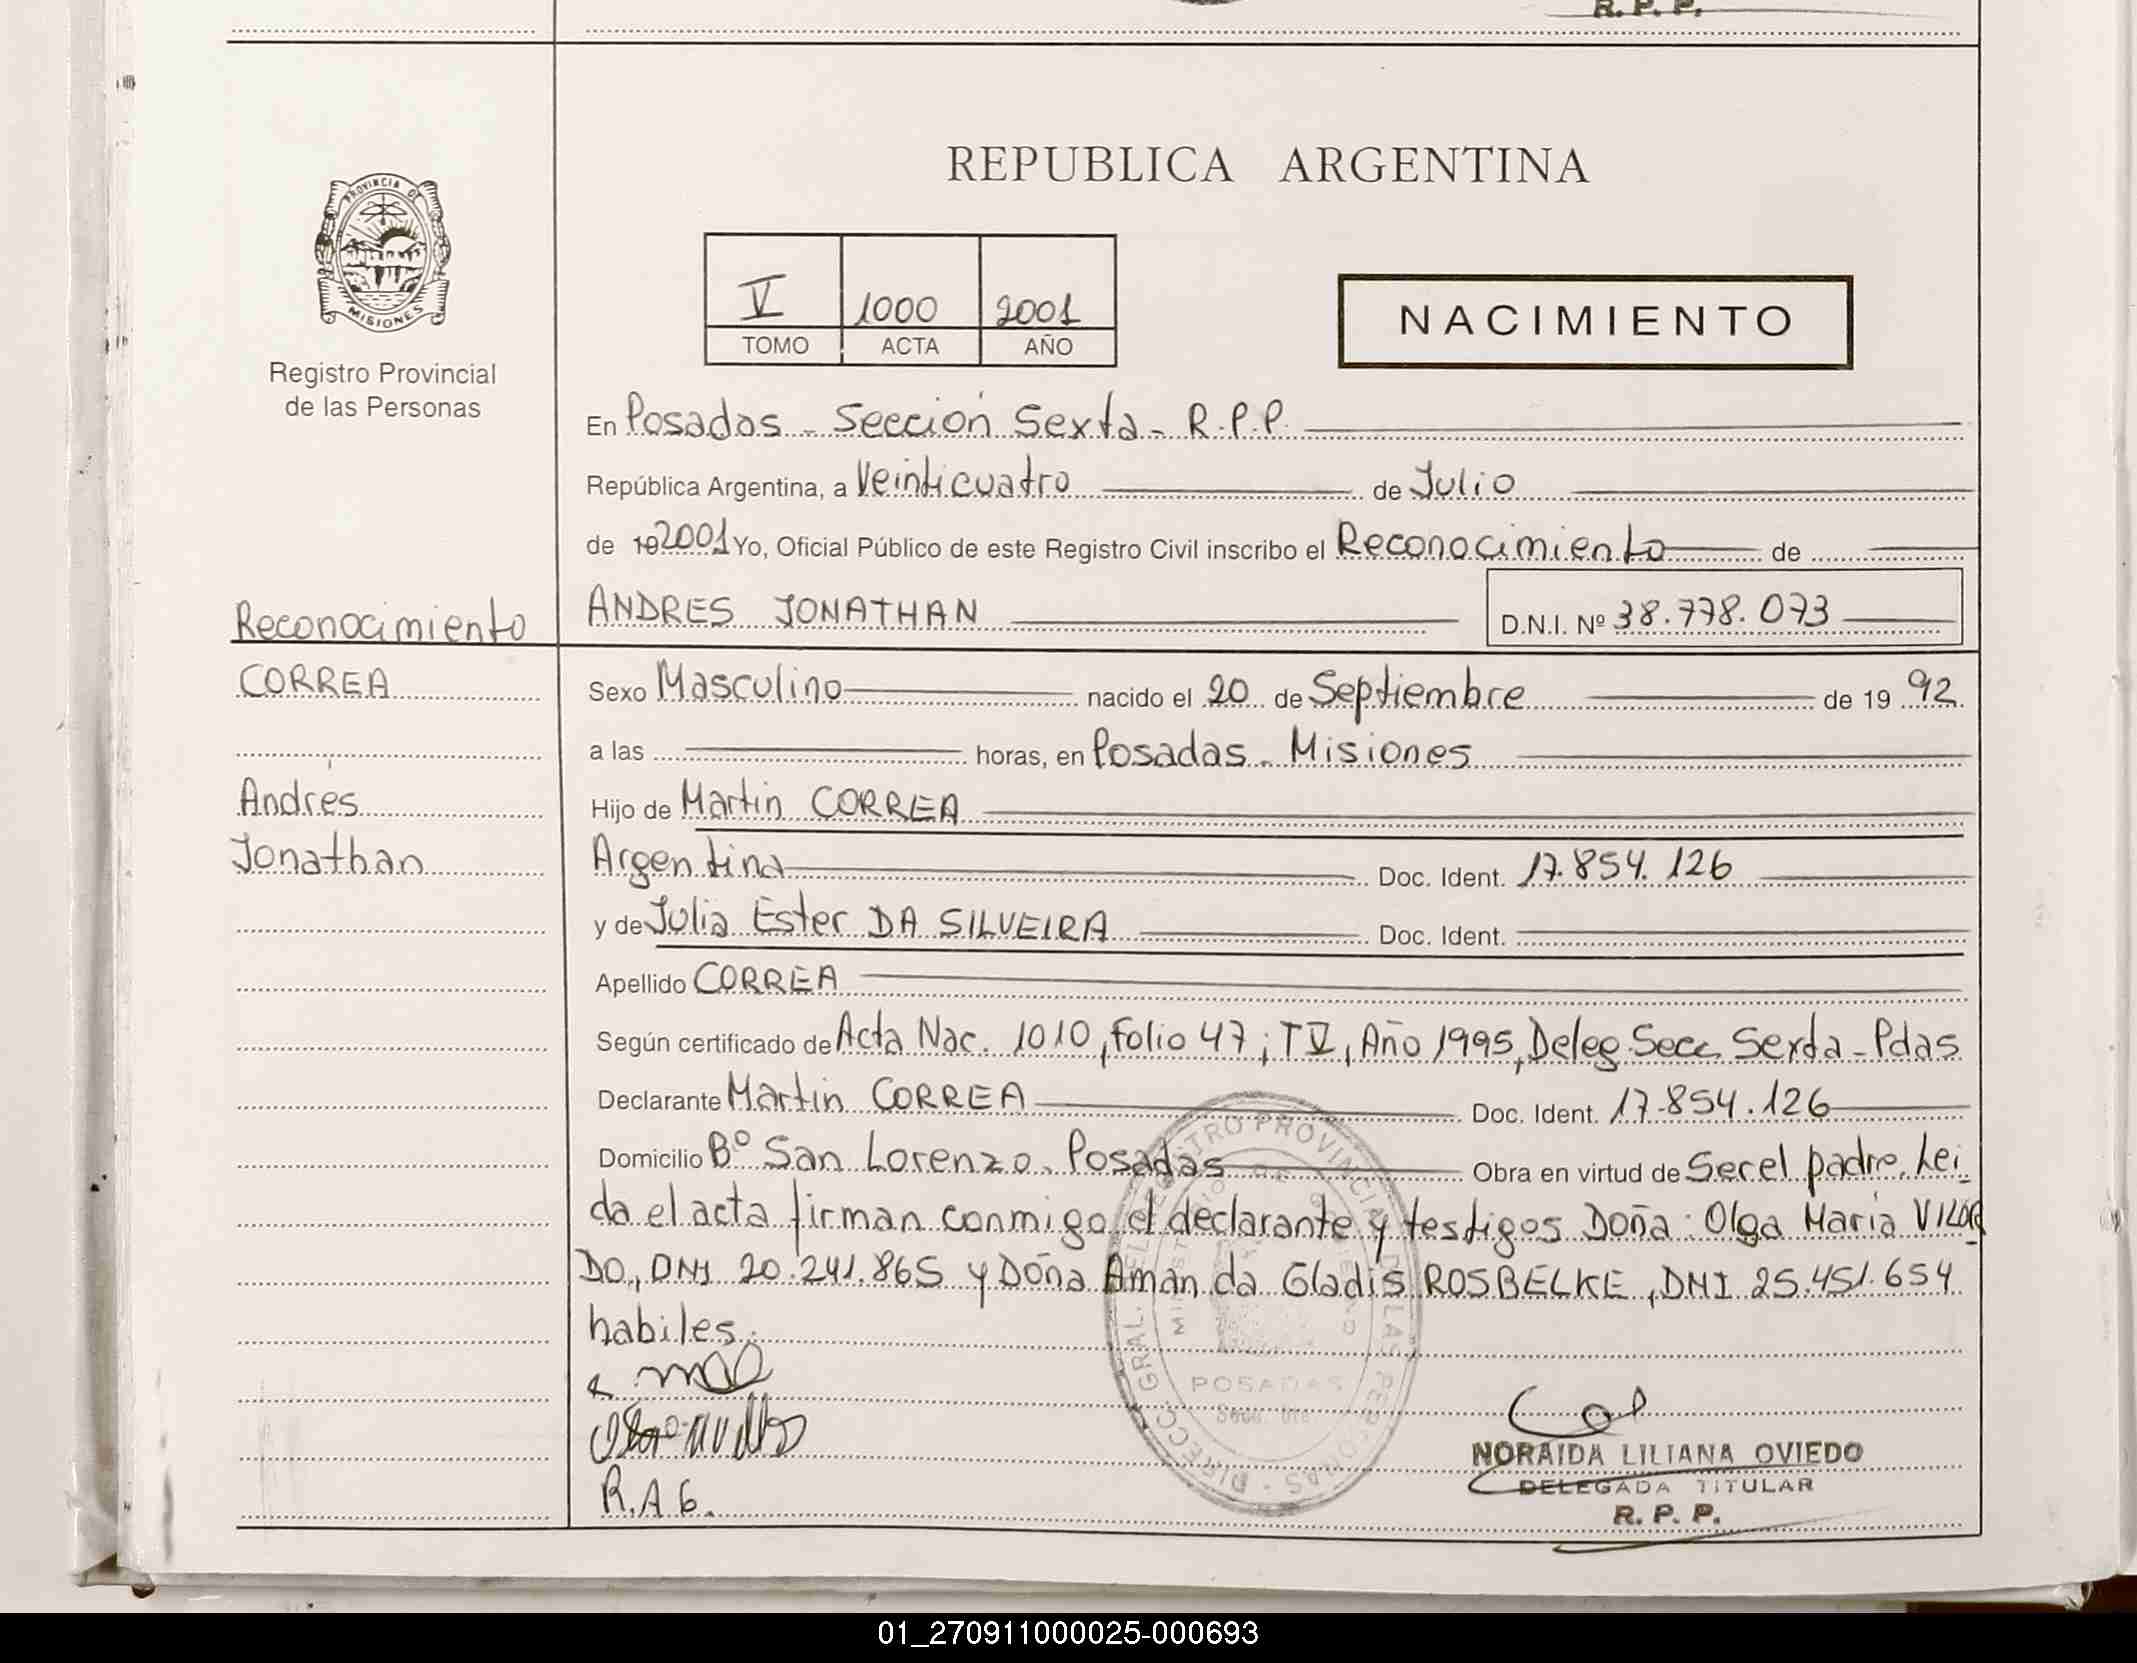 R. P. P.
PROVINCIA DE
MISIONES
Registro Provincial
de las Personas
REPUBLICA ARGENTINA
V 1000 2001
TOMO ACTA AÑO
NACIMIENTO
En Posadas - Sección Sexta - R.P.P.
República Argentina, a Veinticuatro de Julio
de 19 2001 Yo, Oficial Público de este Registro Civil inscribo el Reconocimiento de
ANDRES JONATHAN D.N.I. Nº 38.778.073
Reconocimiento
CORREA
Andrés
Jonathan
Sexo Masculino nacido el 20 de Septiembre de 19 92
a las horas, en Posadas - Misiones
Hijo de Martin CORREA
Argentina Doc. Ident. 17.854.126
y de Julia Ester DA SILVEIRA Doc. Ident.
Apellido CORREA
Según certificado de Acta Nac. 1010, Folio 47; T V, Año 1995, Deleg. Secc. Sexta - Pdas
Declarante Martin CORREA Doc. Ident. 17.854.126
Domicilio Bº San Lorenzo - Posadas Obra en virtud de Ser el padre. Lei-
da el acta firman conmigo el declarante y testigos Doña: Olga Maria VILOR-
DO, DNI 20.241.865 y Doña Amanda Gladis ROSBELKE, DNI 25.451.654
habiles.
R.A.G.
DIRECC. GRAL. DEL REGISTRO PROVINCIAL DE LAS PERSONAS
MINISTERIO DE GOBIERNO
POSADAS
NORAIDA LILIANA OVIEDO
DELEGADA TITULAR
R. P. P.
01_270911000025-000693